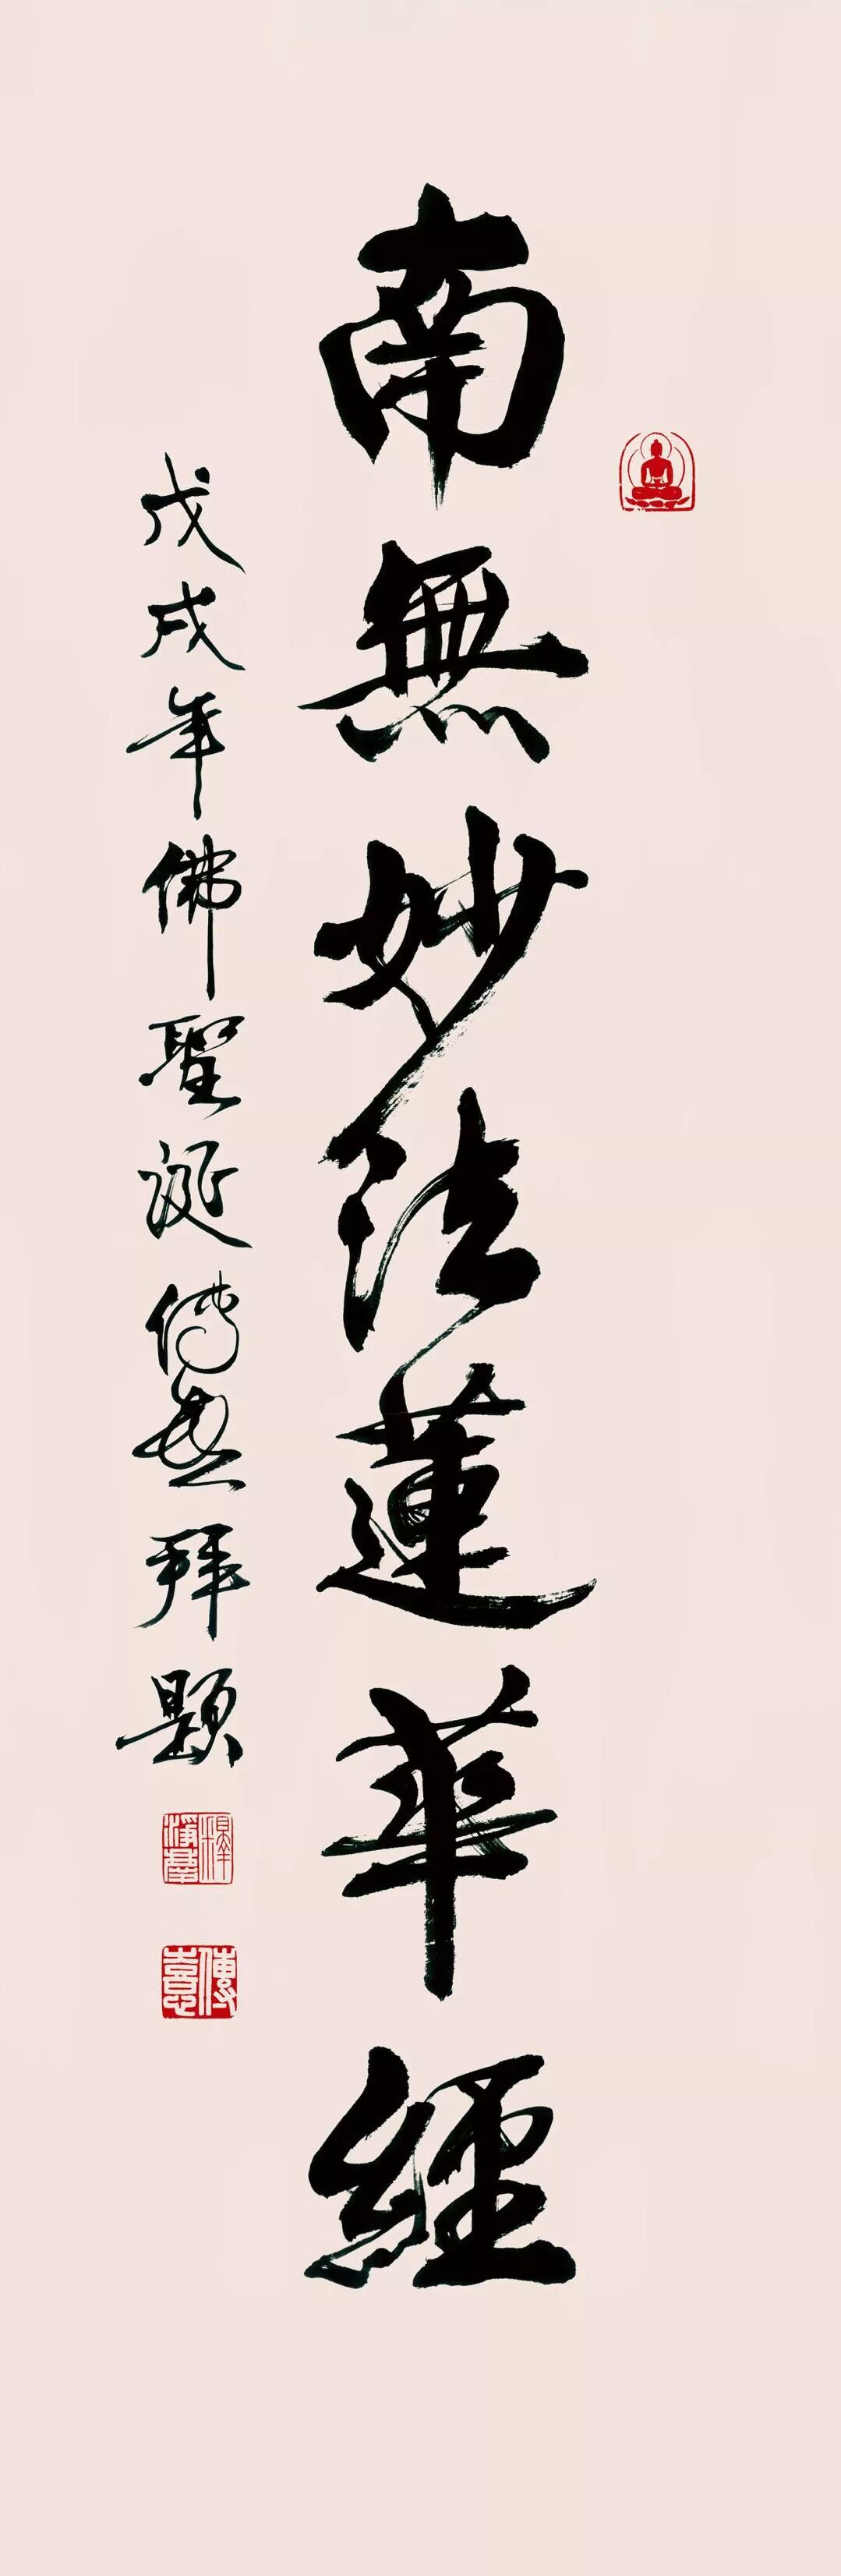 南無妙法蓮華經
戊戌年佛聖誕傳喜拜題
釋淨華
傳喜